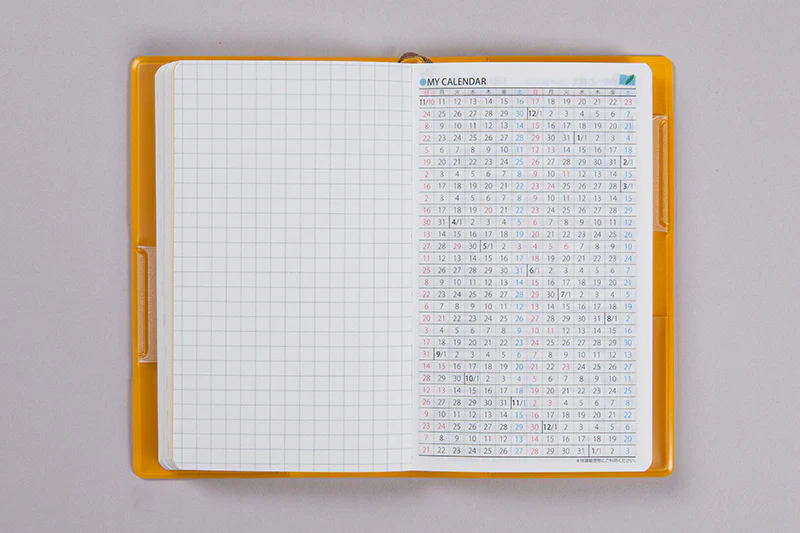 MY CALENDAR
日 月 火 水 木 金 土 日 月 火 水 木 金 土
11/10 11 12 13 14 15 16 17 18 19 20 21 22 23
24 25 26 27 28 29 30 12/1 2 3 4 5 6 7
8 9 10 11 12 13 14 15 16 17 18 19 20 21
22 23 24 25 26 27 28 29 30 31 1/1 2 3 4
5 6 7 8 9 10 11 12 13 14 15 16 17 18
19 20 21 22 23 24 25 26 27 28 29 30 31 2/1
2 3 4 5 6 7 8 9 10 11 12 13 14 15
16 17 18 19 20 21 22 23 24 25 26 27 28 3/1
2 3 4 5 6 7 8 9 10 11 12 13 14 15
16 17 18 19 20 21 22 23 24 25 26 27 28 29
30 31 4/1 2 3 4 5 6 7 8 9 10 11 12
13 14 15 16 17 18 19 20 21 22 23 24 25 26
27 28 29 30 5/1 2 3 4 5 6 7 8 9 10
11 12 13 14 15 16 17 18 19 20 21 22 23 24
25 26 27 28 29 30 31 6/1 2 3 4 5 6 7
8 9 10 11 12 13 14 15 16 17 18 19 20 21
22 23 24 25 26 27 28 29 30 7/1 2 3 4 5
6 7 8 9 10 11 12 13 14 15 16 17 18 19
20 21 22 23 24 25 26 27 28 29 30 31 8/1 2
3 4 5 6 7 8 9 10 11 12 13 14 15 16
17 18 19 20 21 22 23 24 25 26 27 28 29 30
31 9/1 2 3 4 5 6 7 8 9 10 11 12 13
14 15 16 17 18 19 20 21 22 23 24 25 26 27
28 29 30 10/1 2 3 4 5 6 7 8 9 10 11
12 13 14 15 16 17 18 19 20 21 22 23 24 25
26 27 28 29 30 31 11/1 2 3 4 5 6 7 8
9 10 11 12 13 14 15 16 17 18 19 20 21 22
23 24 25 26 27 28 29 30 12/1 2 3 4 5 6
7 8 9 10 11 12 13 14 15 16 17 18 19 20
21 22 23 24 25 26 27 28 29 30 31 1/1 2 3
※体調管理等にご利用ください。